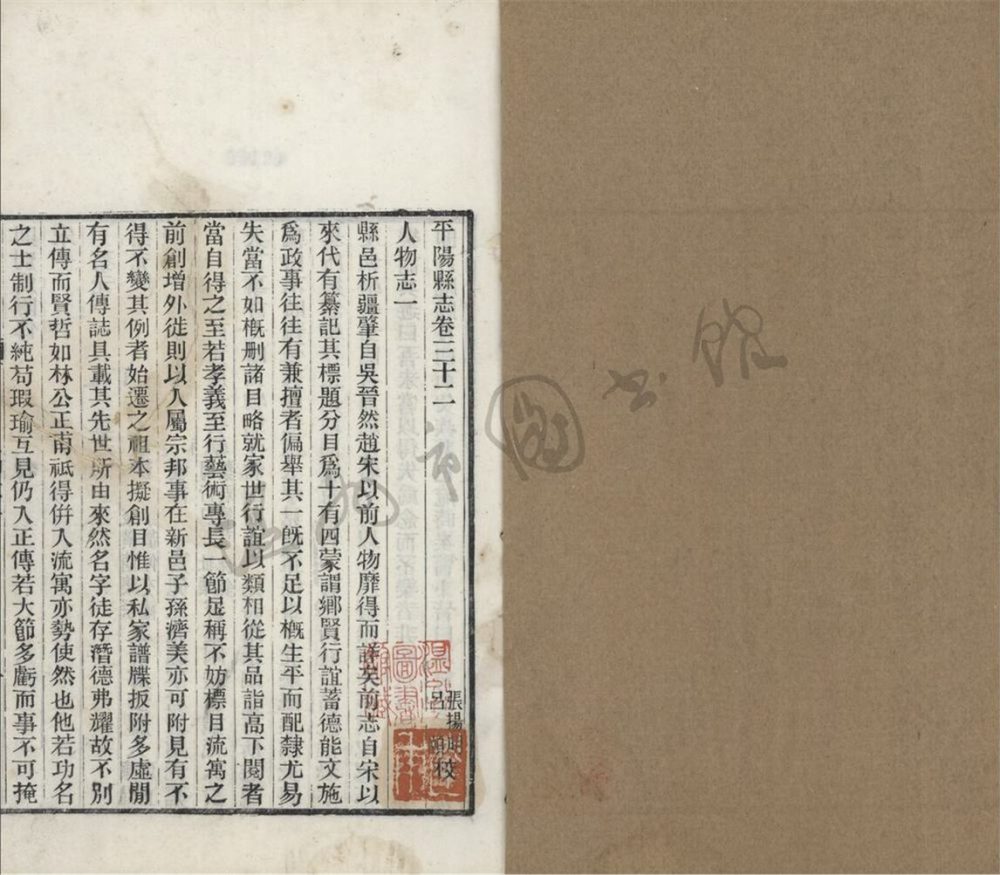 平陽縣志卷三十二
張揚明
呂
校
人物志一
縣邑析疆肇自吳晉然趙宋以前人物靡得而詳矣前志自宋以
來代有纂記其標題分目爲十有四蒙謂鄉賢行誼蓄德能文施
爲政事往往有兼擅者偏舉其一旣不足以槪生平而配隸尤易
失當不如槪刪諸目略就家世行誼以類相從其品詣高下閱者
當自得之至若孝義至行藝術專長一節足稱不妨標目流寓之
前創增外徙則以人屬宗邦事在新邑子孫濟美亦可附見有不
得不變其例者始遷之祖本擬創目惟以私家譜牒扳附多虛閒
有名人傳誌具載其先世所由來然名字徒存潛德弗耀故不別
立傳而賢哲如林公正甫祇得倂入流寓亦勢使然也他若功名
之士制行不純苟瑕瑜互見仍入正傳若大節多虧而事不可掩
溫州市圖書館